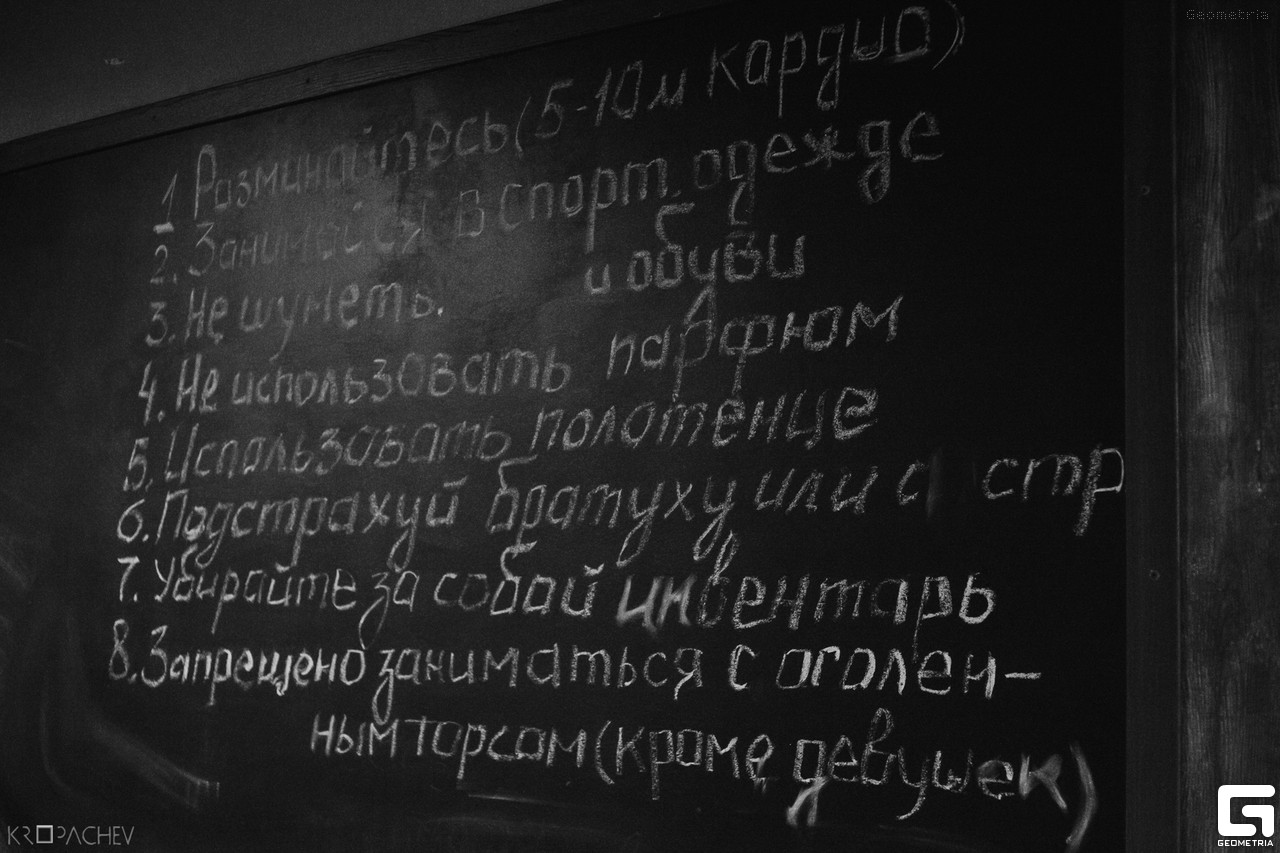 Geometria
1 Разминайтесь (5-10м кардио)
2. Занимайся в спорт. одежде
и обуви
3. Не шуметь.
4. Не использовать парфюм
5. Использовать полотенце
6. Подстрахуй братуху или с стр
7. Убирайте за собой инвентарь
8. Запрещено заниматься с оголен-
ным торсом (кроме девушек)
KROPACHEV
GEOMETRIA